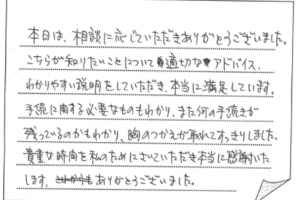 本日は、相談に応じていただきありがとうございました。
こちらが知りたいことについて適切なアドバイス、
わかりやすい説明をしていただき、本当に満足しています。
手続に関する必要なものもわかり、また何の手続きが
残っているのかもわかり、胸のつかえが取れてすっきりしました。
貴重な時間を私のためにさいていただき本当に感謝いた
します。ありがとうございました。